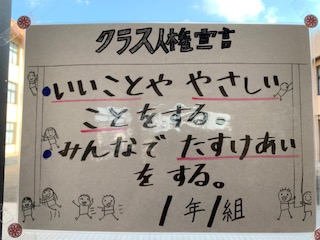 クラス人権宣言
・いいことや やさしい
ことをする。
・みんなで たすけあい
をする。
1年1組